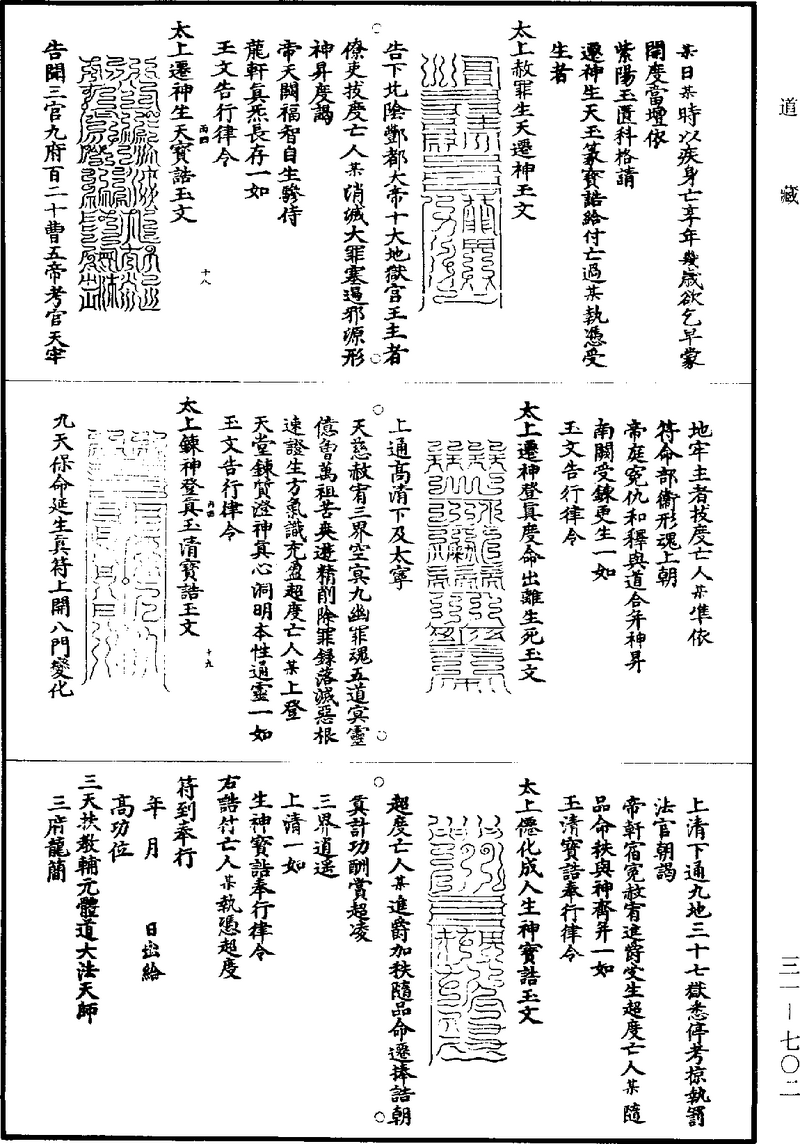 道藏
某日某時以疾身亡享年幾歲欲乞早蒙
開度當壇依
紫陽玉匱科格請
遷神生天玉篆寶誥給付亡過某執憑受
生者
太上赦罪生天遷神玉文
告下北陰酆都大帝十大地獄官王主者
僚吏拔度亡人某消滅大罪塞遏邪源形
神昇度謁
帝天闕福智自生驂侍
龍軒真炁長存一如
玉文告行律令
丙四
十八
太上遷神生天寶誥玉文
告開三官九府百二十曹五帝考官天牢
地牢主者拔度亡人某準依
符命部衞形魂上朝
帝庭冤仇和釋與道合并神昇
南關受鍊更生一如
玉文告行律令
太上遷神登真度命出離生死玉文
上通高清下及太寧
天慈赦宥三界空冥九幽罪魂五道冥靈
億曾萬祖苦爽遊精削除罪錄落滅惡根
速證生方氣識充盈超度亡人某上登
天堂鍊質澄神真心洞明本性通靈一如
玉文告行律令
丙四
十九
太上鍊神登真玉清寶誥玉文
九天保命延生真符上開八門變化
上清下通九地三十七獄悉停考掠執罰
法官朝謁
帝軒宿冤赦宥進爵受生超度亡人某隨
品命秩與神齊并一如
玉清寶誥奉行律令
太上僊化成人生神寶誥玉文
超度亡人某進爵加秩隨品命遷捧誥朝
真計功酬賞超凌
三界逍遥
上清一如
生神寶誥奉行律令
右誥付亡人某執憑超度
符到奉行
年 月 日出給
高功位
三天扶教輔元體道大法天師
三府龍蘭
三一—七〇二